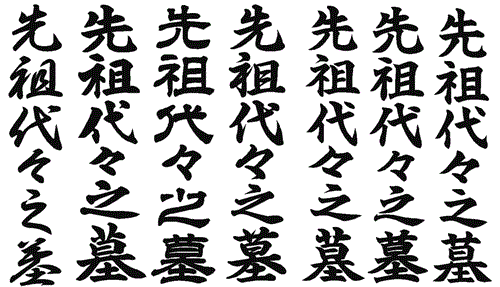 先祖代々之墓
先祖代々之墓
先祖代々之墓
先祖代々之墓
先祖代々之墓
先祖代々之墓
先祖代々之墓